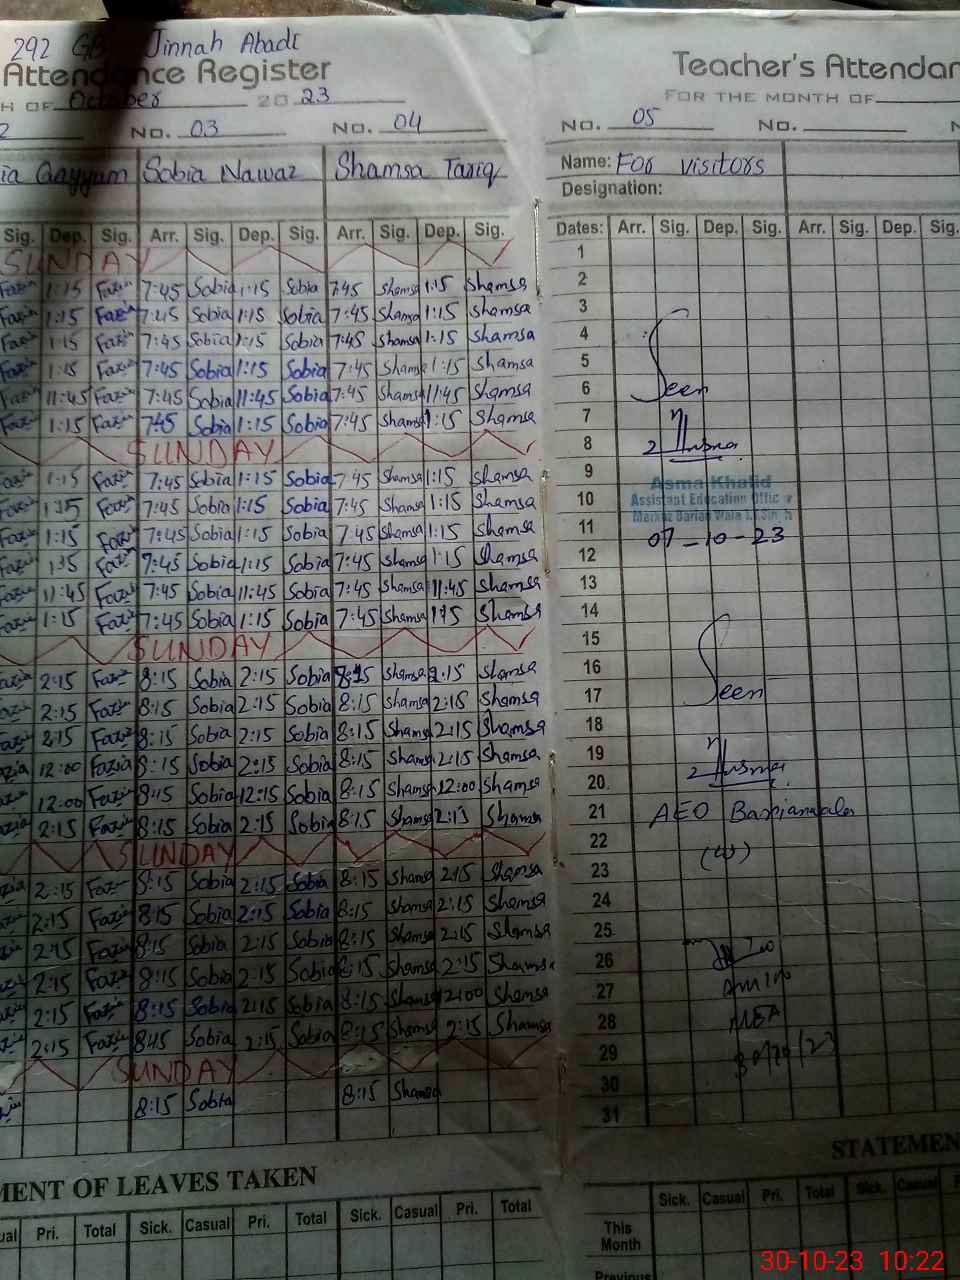 292 GB Jinnah Abadi
Attendance Register
H OF October 2023
2 No. 03 No. 04
ia Qayyum Sobia Nawaz Shamsa Tariq
Sig. Dep. Sig. Arr. Sig. Dep. Sig. Arr. Sig. Dep. Sig.
SUNDAY
1:15 7:45 Sobia 1:15 Sobia 7:45 Shamsa 1:15 Shamsa
1:15 7:45 Sobia 1:15 Sobia 7:45 Shamsa 1:15 Shamsa
1:15 7:45 Sobia 1:15 Sobia 7:45 Shamsa 1:15 Shamsa
1:15 7:45 Sobia 1:15 Sobia 7:45 Shamsa 1:15 Shamsa
11:45 7:45 Sobia 11:45 Sobia 7:45 Shamsa 11:45 Shamsa
1:15 7:45 Sobia 1:15 Sobia 7:45 Shamsa 1:15 Shamsa
SUNDAY
1:15 7:45 Sobia 1:15 Sobia 7:45 Shamsa 1:15 Shamsa
7:45 Sobia 1:15 Sobia 7:45 Shamsa 1:15 Shamsa
1:15 7:45 Sobia 1:15 Sobia 7:45 Shamsa 1:15 Shamsa
7:45 Sobia 1:15 Sobia 7:45 Shamsa 1:15 Shamsa
11:45 7:45 Sobia 11:45 Sobia 7:45 Shamsa 11:45 Shamsa
1:15 7:45 Sobia 1:15 Sobia 7:45 Shamsa 1:15 Shamsa
SUNDAY
2:15 8:15 Sobia 2:15 Sobia Shamsa 2:15 Shamsa
2:15 8:15 Sobia 2:15 Sobia 8:15 Shamsa 2:15 Shamsa
2:15 8:15 Sobia 2:15 Sobia 8:15 Shamsa 2:15 Shamsa
12:00 Fazia 8:15 Sobia 2:15 Sobia 8:15 Shamsa 2:15 Shamsa
12:00 Fazia 8:15 Sobia 12:15 Sobia 8:15 Shamsa 12:00 Shamsa
2:15 Fazia 8:15 Sobia 2:15 Sobia 8:15 Shamsa 2:15 Shamsa
SUNDAY
2:15 8:15 Sobia 2:15 Sobia 8:15 Shamsa 2:15 Shamsa
2:15 Fazia 8:15 Sobia 2:15 Sobia 8:15 Shamsa 2:15 Shamsa
2:15 8:15 Sobia 2:15 Sobia 8:15 Shamsa 2:15 Shamsa
2:15 8:15 Sobia 2:15 Sobia 8:15 Shamsa 2:15 Shamsa
2:15 8:15 Sobia 2:15 Sobia 8:15 Shamsa 2:00 Shamsa
2:15 8:15 Sobia 2:15 Sobia 8:15 Shamsa 2:15 Shamsa
SUNDAY
8:15 Sobia 8:15 Shamsa
MENT OF LEAVES TAKEN
ual Pri. Total Sick. Casual Pri. Total Sick. Casual Pri. Total
Teacher's Attendan
FOR THE MONTH OF
No. 05 No.
Name: For visitors
Designation:
Dates: Arr. Sig. Dep. Sig. Arr. Sig. Dep. Sig.
1
2
3
4
5
6 Seen
7
8
9 Asma Khalid
10 Assistant Education Officer
11 07-10-23
12
13
14
15
16
17 Seen
18
19
20
21 AEO
22
23 (W)
24
25
26
27
28 MEA
29 30/10/23
30
31
STATEMEN
Sick. Casual Pri. Total Sick. Casual
This Month
Previous
30-10-23 10:22